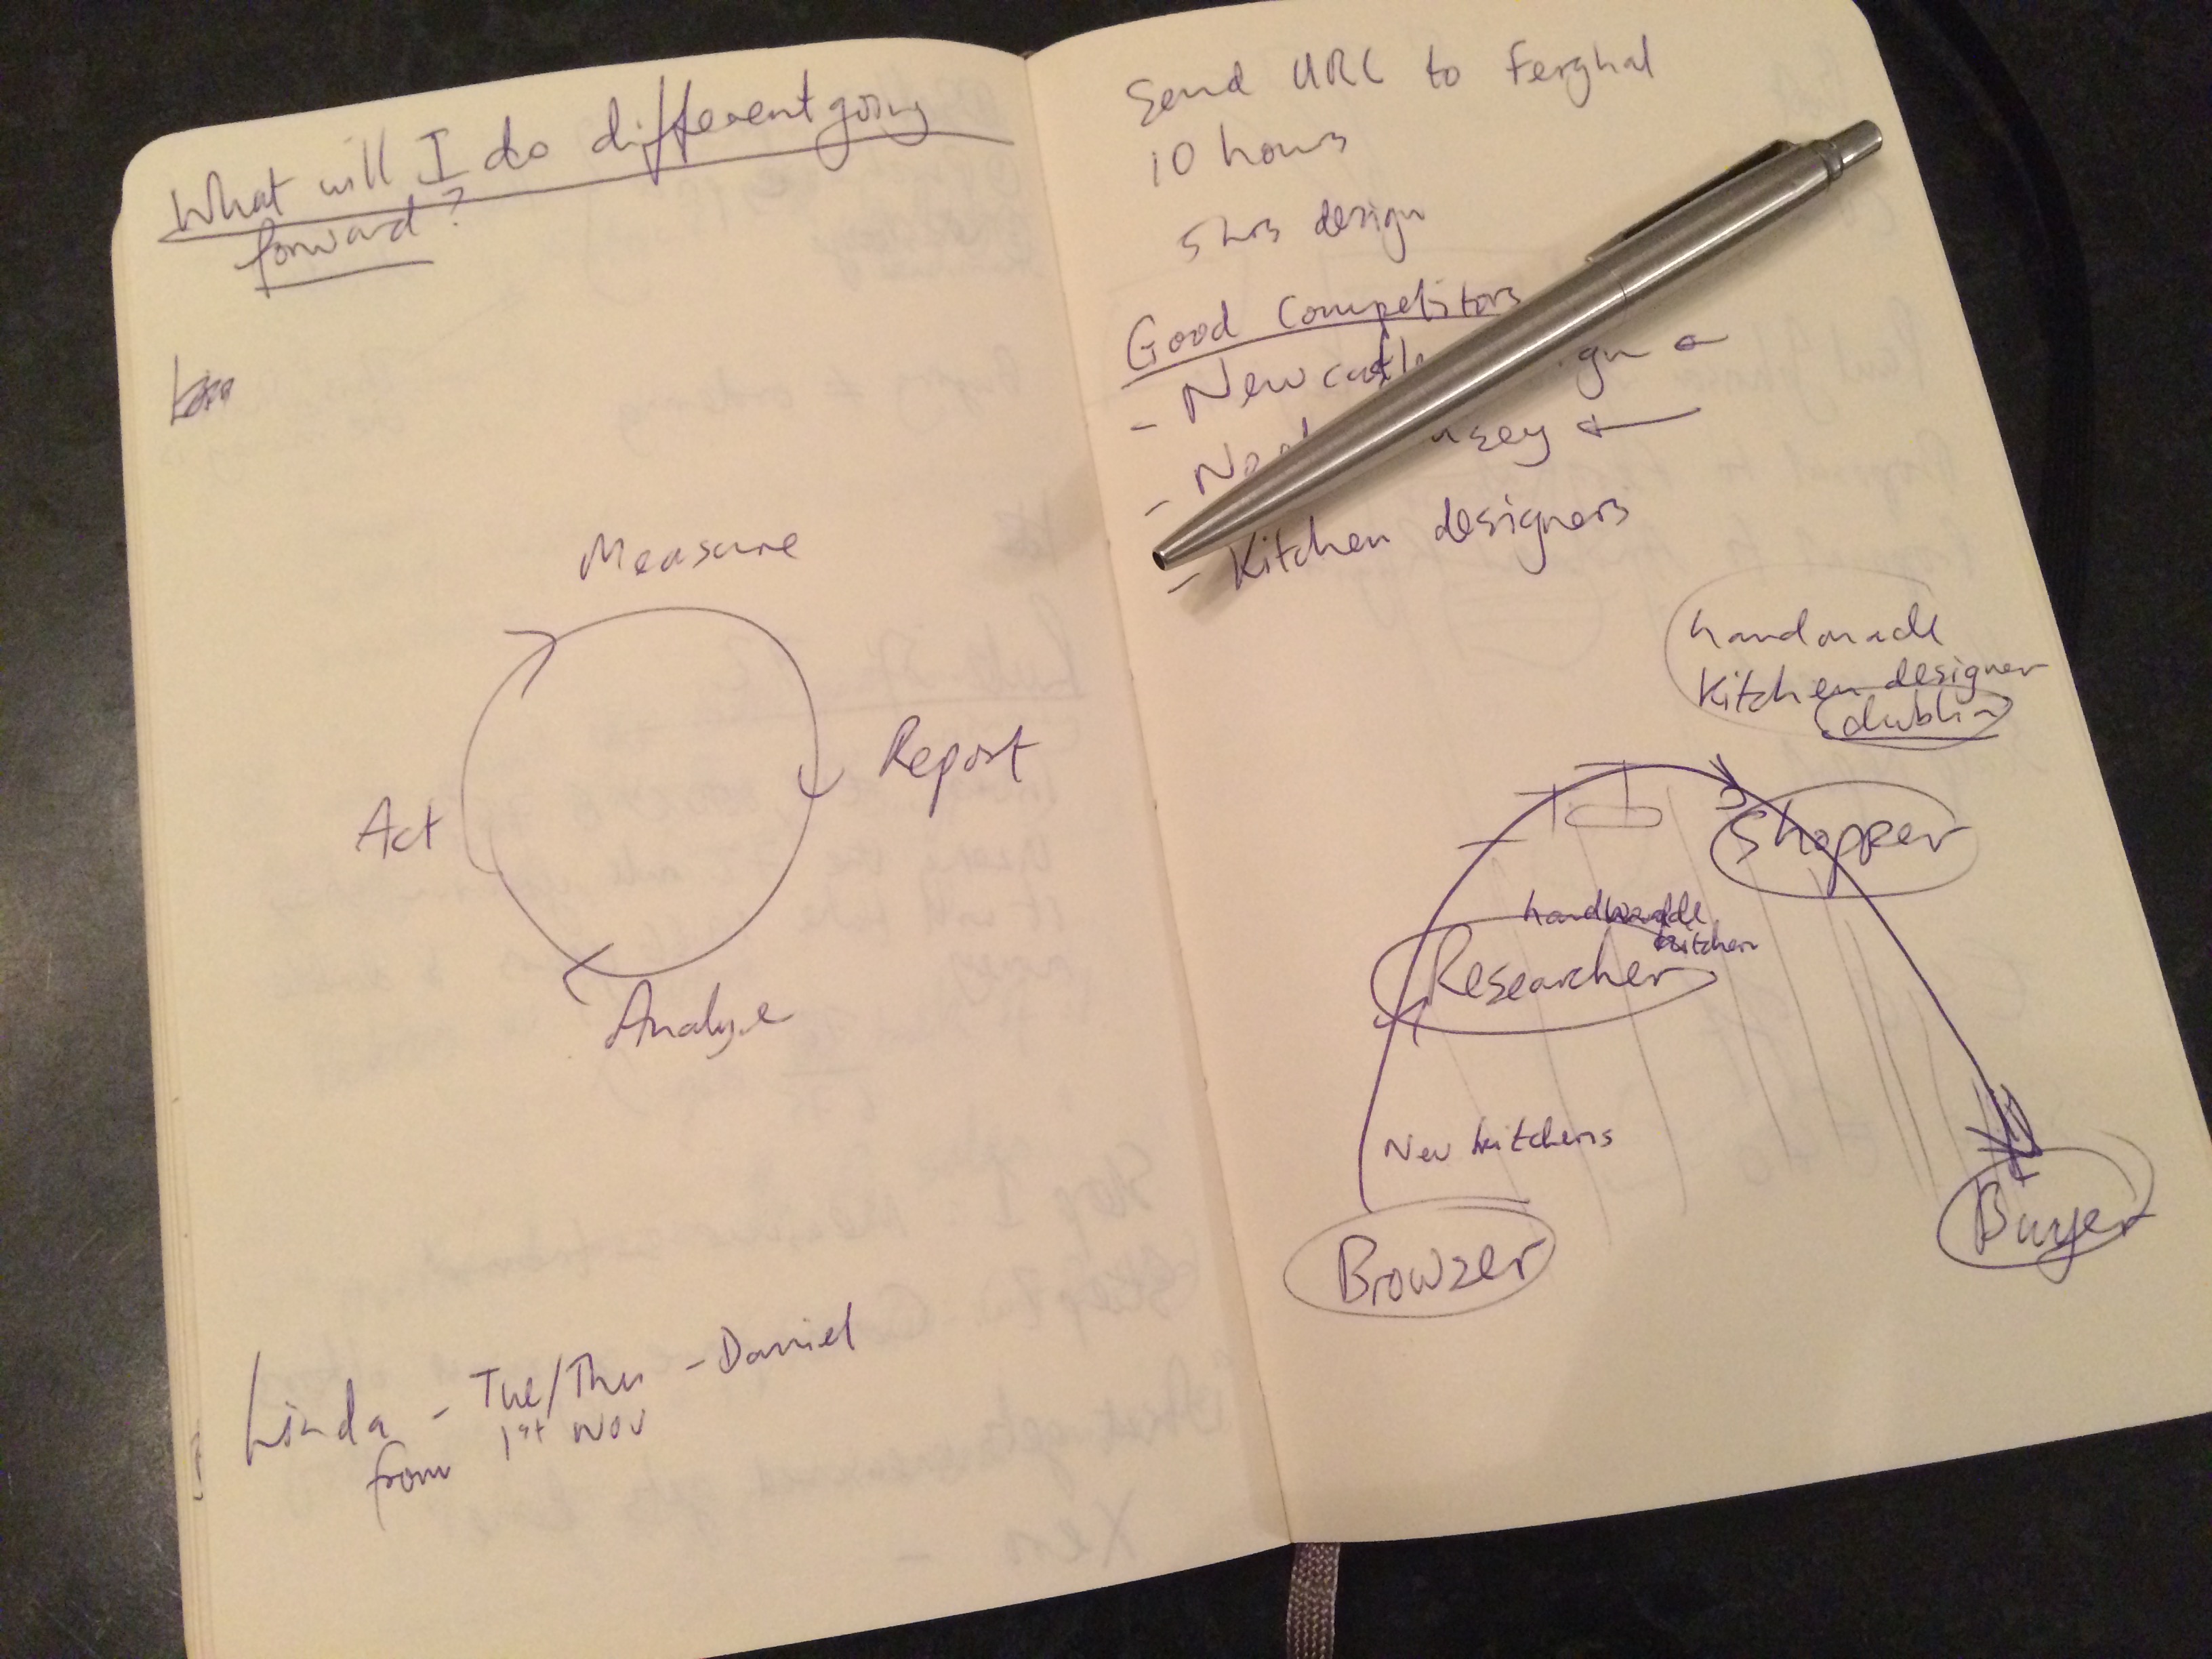 What will I do different going
forward?
Measure
Report
Act
Analyze
Linda - Tue/Thu - Daniel
from 1st NOV
Send URL to Ferghal
10 hours
5 hrs design
Good Competitors
- Newcastle
-
- Kitchen designers
handmade
Kitchen designer
dublin
Shopper
handmade
kitchen
Researcher
New kitchens
Browzer
Buyer